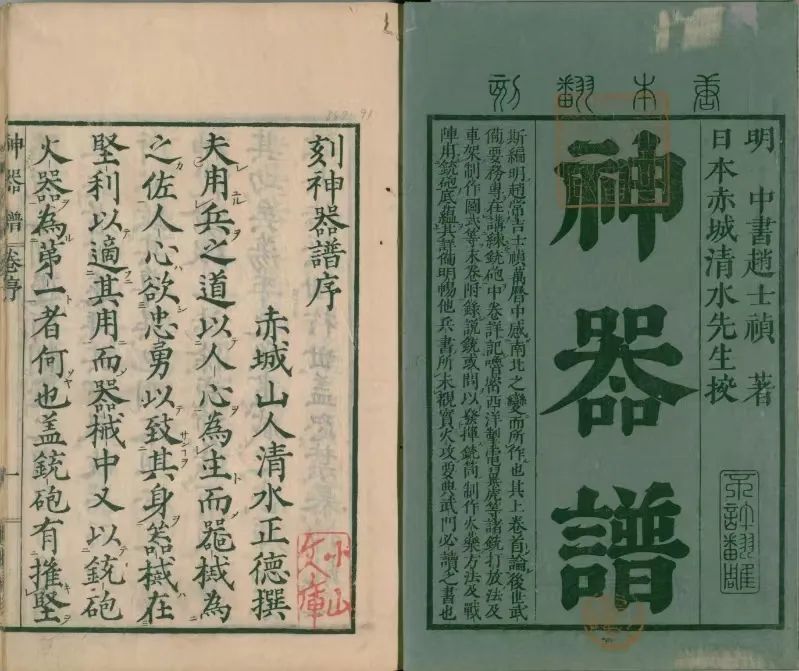 唐本翻刻
明 中書趙士禎 著
日本赤城清水先生挍
不許翻雕
神器譜
斯編明趙常吉士禎萬曆中感南北之變而所作也其上卷首論後世武
備要務專在講練銃砲中卷詳記嚕嘧西洋掣電翼虎等諸銃打放法及
車架制作圖式等末卷附錄說銃或問以發揮銃筒制作火藥方法及戰
陣用銃砲底蘊其詳備明暢他兵書所未觀實火攻要典武門必讀之書也
刻神器譜序
赤城山人清水正德撰
小山文庫
夫用兵之道以人心為主而噐械為
之佐人心欲忠勇以致其身器械在
堅利以適其用而器械中又以銃砲
火器為第一者何也盖銃砲有摧堅
神器譜 卷序 一